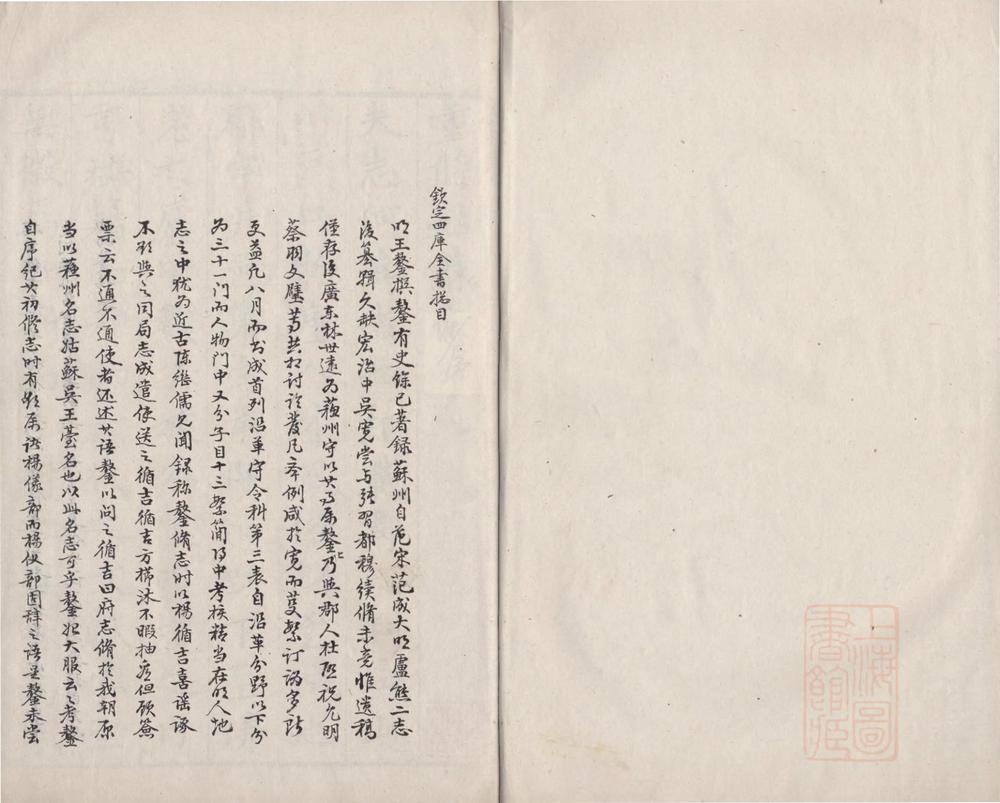 欽定四庫全書提目
明王鏊撰鏊有史餘已著録蘇州自范宋范成大明盧熊二志
後纂輯久缺宏治中吳寬嘗与張習都穆續脩未竟惟遺稿
僅存後廣东林世遠为蘇州守以其事属鏊鏊乃與郡人杜啓祝允明
蔡羽文璧等共相討論發凡舉例咸於寬而芟繁訂訛多所
更益凡八月而书成首列沿革守令科第三表自沿革分野以下分
为三十一門而人物門中又分子目十三繁簡得中考核精当在明人地
志之中犹为近古陈繼儒見聞録称鏊脩志时以楊循吉喜謡諑
不欲與之同局志成遣使送之循吉循吉方櫛沐不暇抽看但顾簽
票云不通不通使者还述其語鏊以问之循吉曰府志脩於我朝原
当以蘇州名志姑蘇吳王臺名也以此名志可乎鏊始大服云云考鏊
自序纪其初脩志时有欲属諸楊儀部而楊仪部固辞之语是鏊未尝
上海圖
書館藏